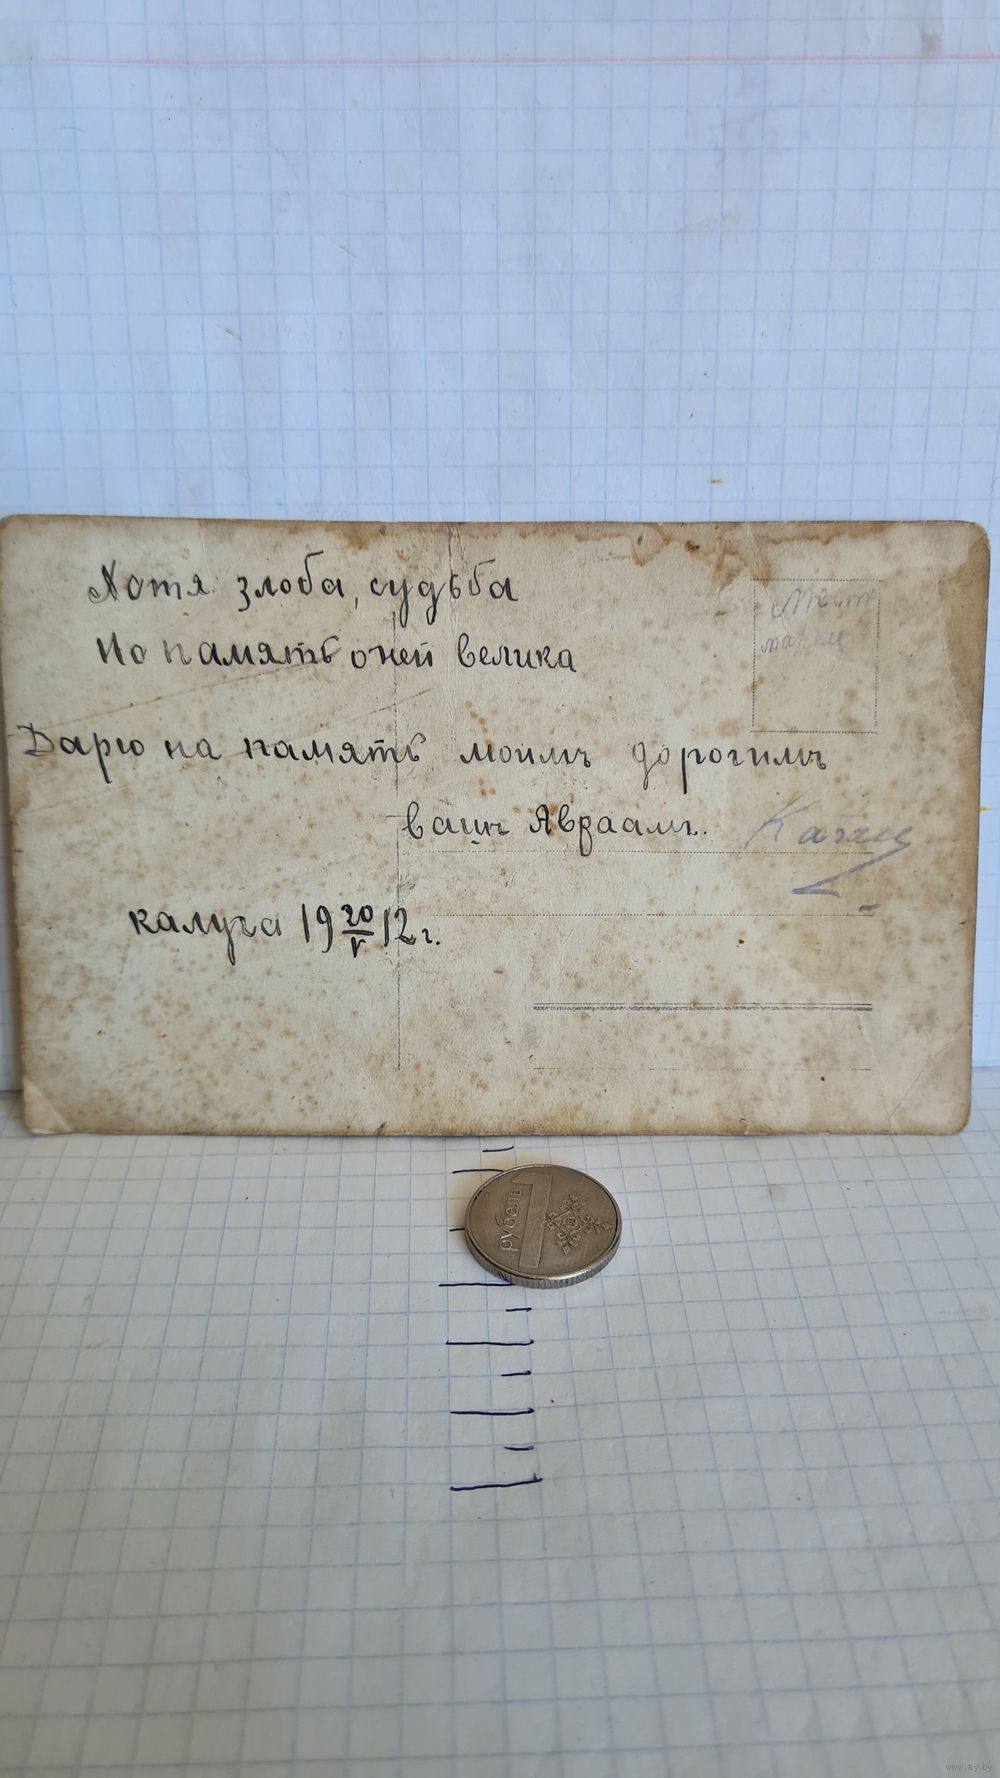 Хотя злоба, судьба
Но память о ней велика
Дарю на память моимъ дорогимъ
вашъ Авраамъ.
калуга 19 20/V 12 г.
1 рубель
www.ay.by